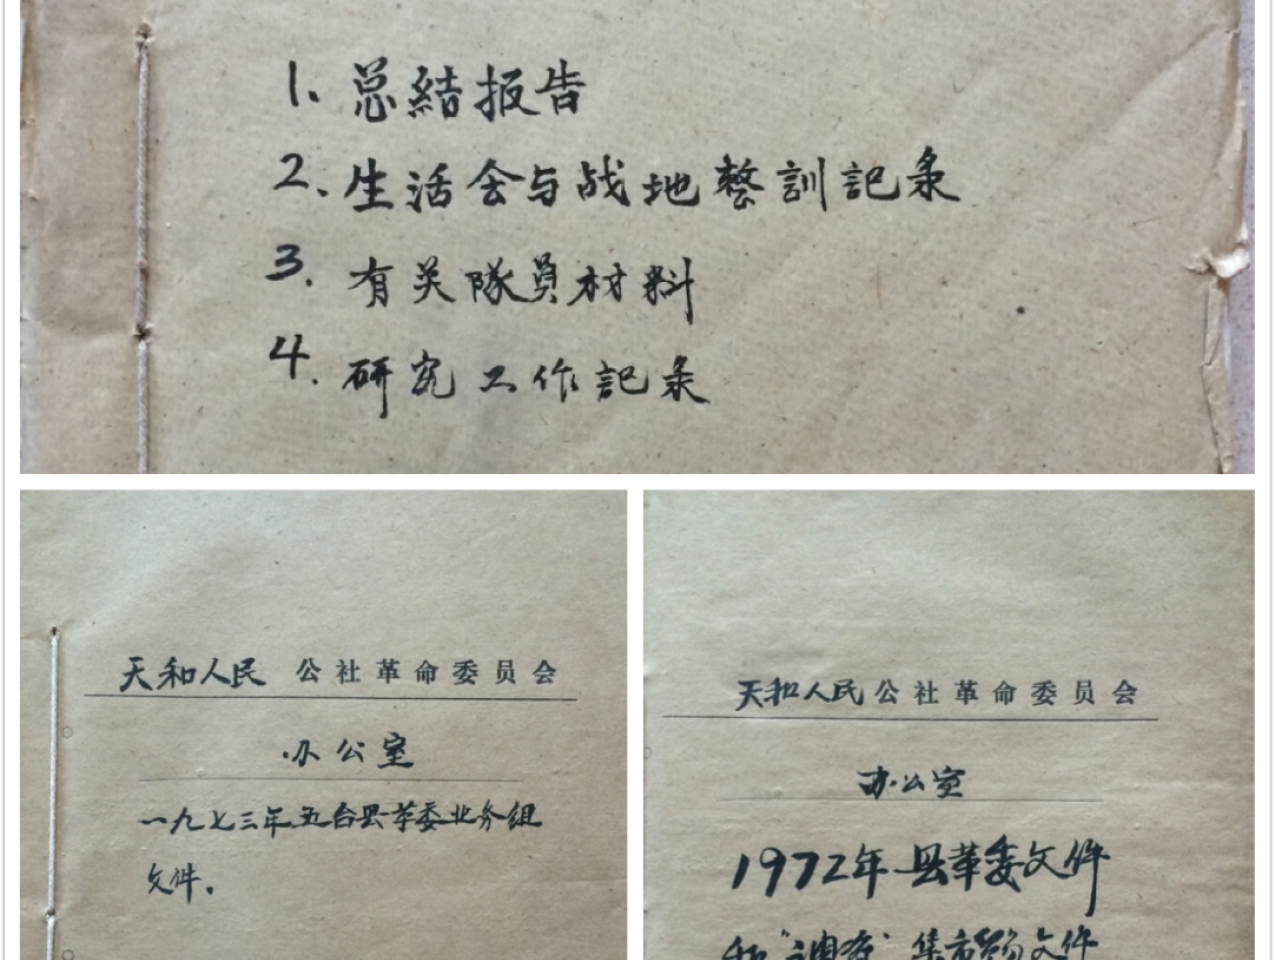 1. 总結报告
2. 生活会与战地整訓記录
3. 有关隊員材料
4. 研究工作記录
天和人民 公社革命委员会
办公室
一九七三年五台县革委业务组
文件.
天和人民公社革命委员会
办公室
1972年县革委文件
和"调查"集市贸易文件